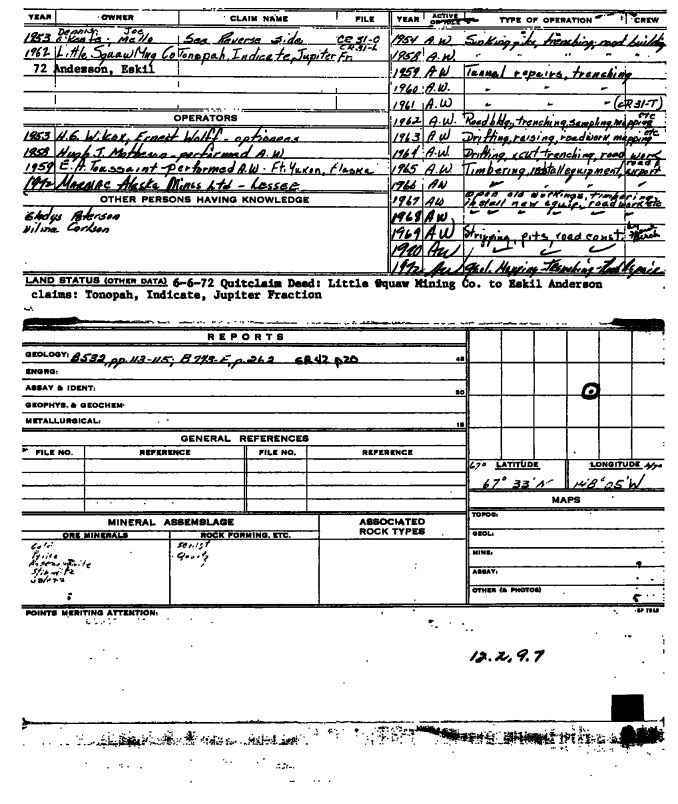 YEAR OWNER CLAIM NAME FILE
1953 Dennis O'Keefe, Joe Malle See Reverse Side CR 31-C
1962 Little Squaw Mng Co Tonopah, Indicate, Jupiter Fr CR 31-L
72 Anderson, Eskil
OPERATORS
1953 H.G. Wilcox, Ernest Wolff - optioners
1958 Hugh J. Matheson - performed A.W.
1959 E.A. Toussaint - performed A.W. - Ft. Yukon, Alaska
1972 Marniac Alaska Mines Ltd - Lessee
OTHER PERSONS HAVING KNOWLEDGE
Gladys Peterson
Wilma Carlson
YEAR ACTIVE TYPE OF OPERATION CREW
1954 A.W. Sinking pits, trenching, road building
1958 A.W. " "
1959 A.W Tunnel repairs, trenching
1960 A.W. " "
1961 A.W " " (CR31-T)
1962 A.W. Road bldg, trenching, sampling, mapping etc
1963 A.W Drifting, raising, roadwork mapping etc
1964 A.W Drifting, xcut trenching, road work
1965 A.W Timbering, install equipment, airport roads
1966 AW " " "
1967 AW open old workings, timbering, install new equip, road work etc
1968 AW
1969 AW Stripping, pits, road const.
1970 AW
1972 AW Geol. Mapping - Trenching -
LAND STATUS (OTHER DATA) 6-6-72 Quitclaim Deed: Little Squaw Mining Co. to Eskil Anderson
claims: Tonopah, Indicate, Jupiter Fraction
REPORTS
GEOLOGY: B532, pp. 113-115; B 773-E, p. 262 GR 42 p20 45
ENGRG:
ASSAY & IDENT: 30
GEOPHYS. & GEOCHEM-
METALLURGICAL: 15
GENERAL REFERENCES
FILE NO. REFERENCE FILE NO. REFERENCE
67° LATITUDE LONGITUDE
67° 33' N 148° 05' W
MAPS
TOPOG:
GEOL:
MINE:
ASSAY:
OTHER (& PHOTOS)
MINERAL ASSEMBLAGE ASSOCIATED ROCK TYPES
ORE MINERALS ROCK FORMING, ETC.
Gold Schist
Pyrite Quartz
Arsenopyrite
Stibnite
Galena
POINTS MERITING ATTENTION:
12.2, 9.7